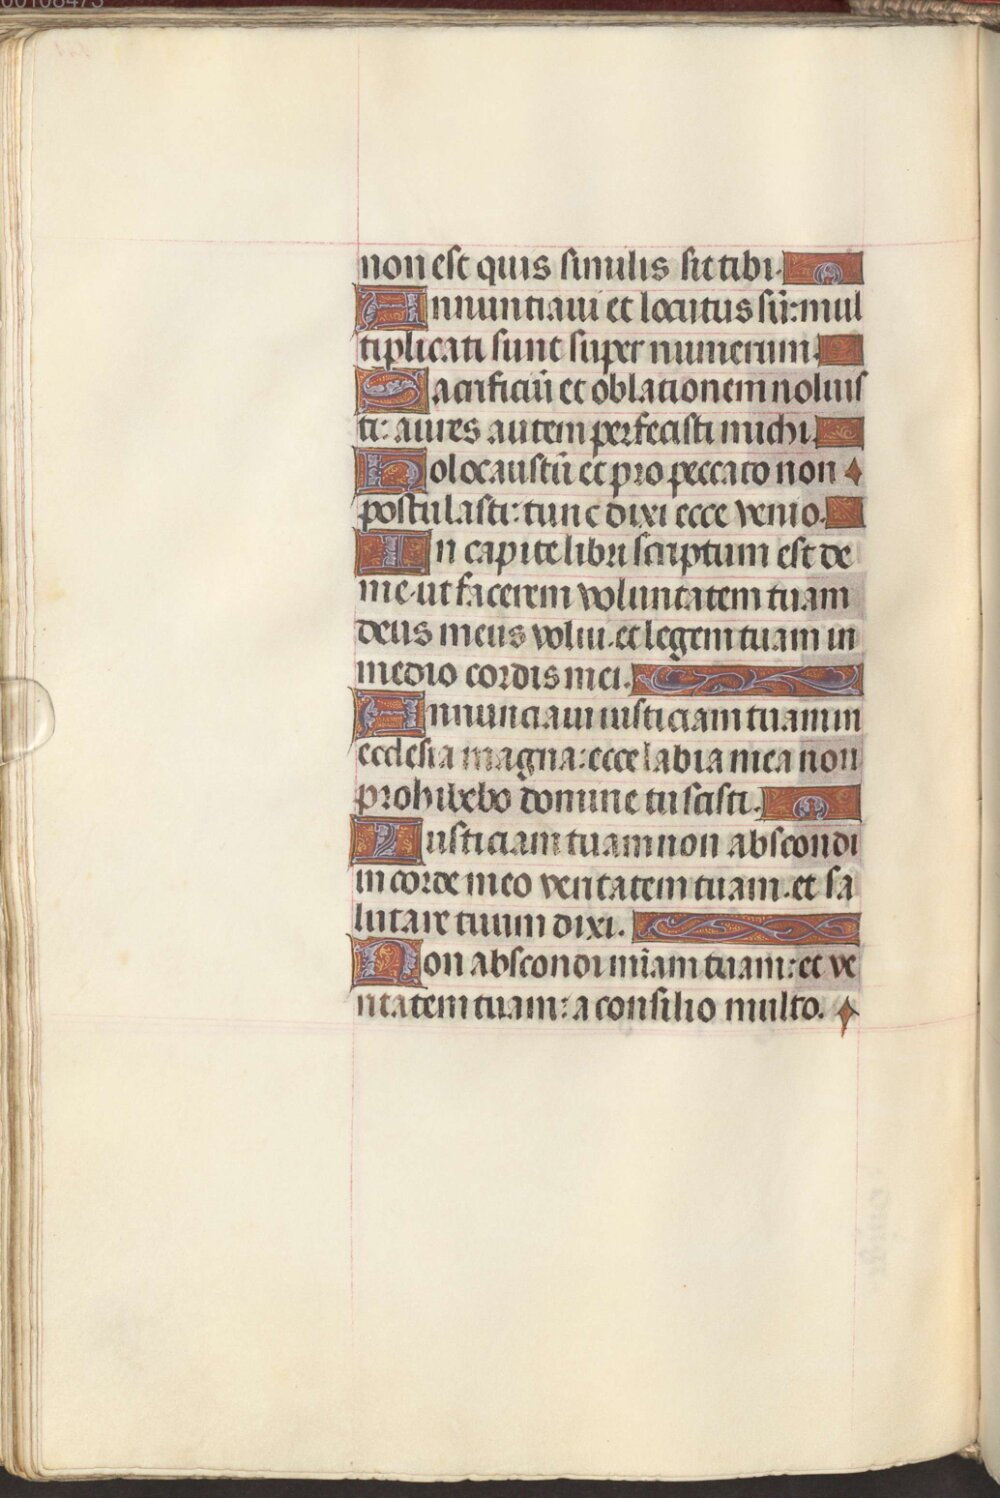 non est quis similis sit tibi.
Annuntiavi et locutus sũ: mul
tiplicati sunt super numerum.
Sacrificiũ et oblationem noluis
ti: aures autem perfecisti michi.
Holocaustũ et pro peccato non
postulasti: tunc dixi ecce venio.
In capite libri scriptum est de
me. ut facerem voluntatem tuam
deus meus volui. et legem tuam in
medio cordis mei.
Annunciavi iusticiam tuam in
ecclesia magna: ecce labia mea non
prohibebo domine tu scisti.
Iusticiam tuam non abscondi
in corde meo veritatem tuam. et sa
lutare tuum dixi.
Non abscondi mĩam tuam: et ve
ritatem tuam: a consilio multo.